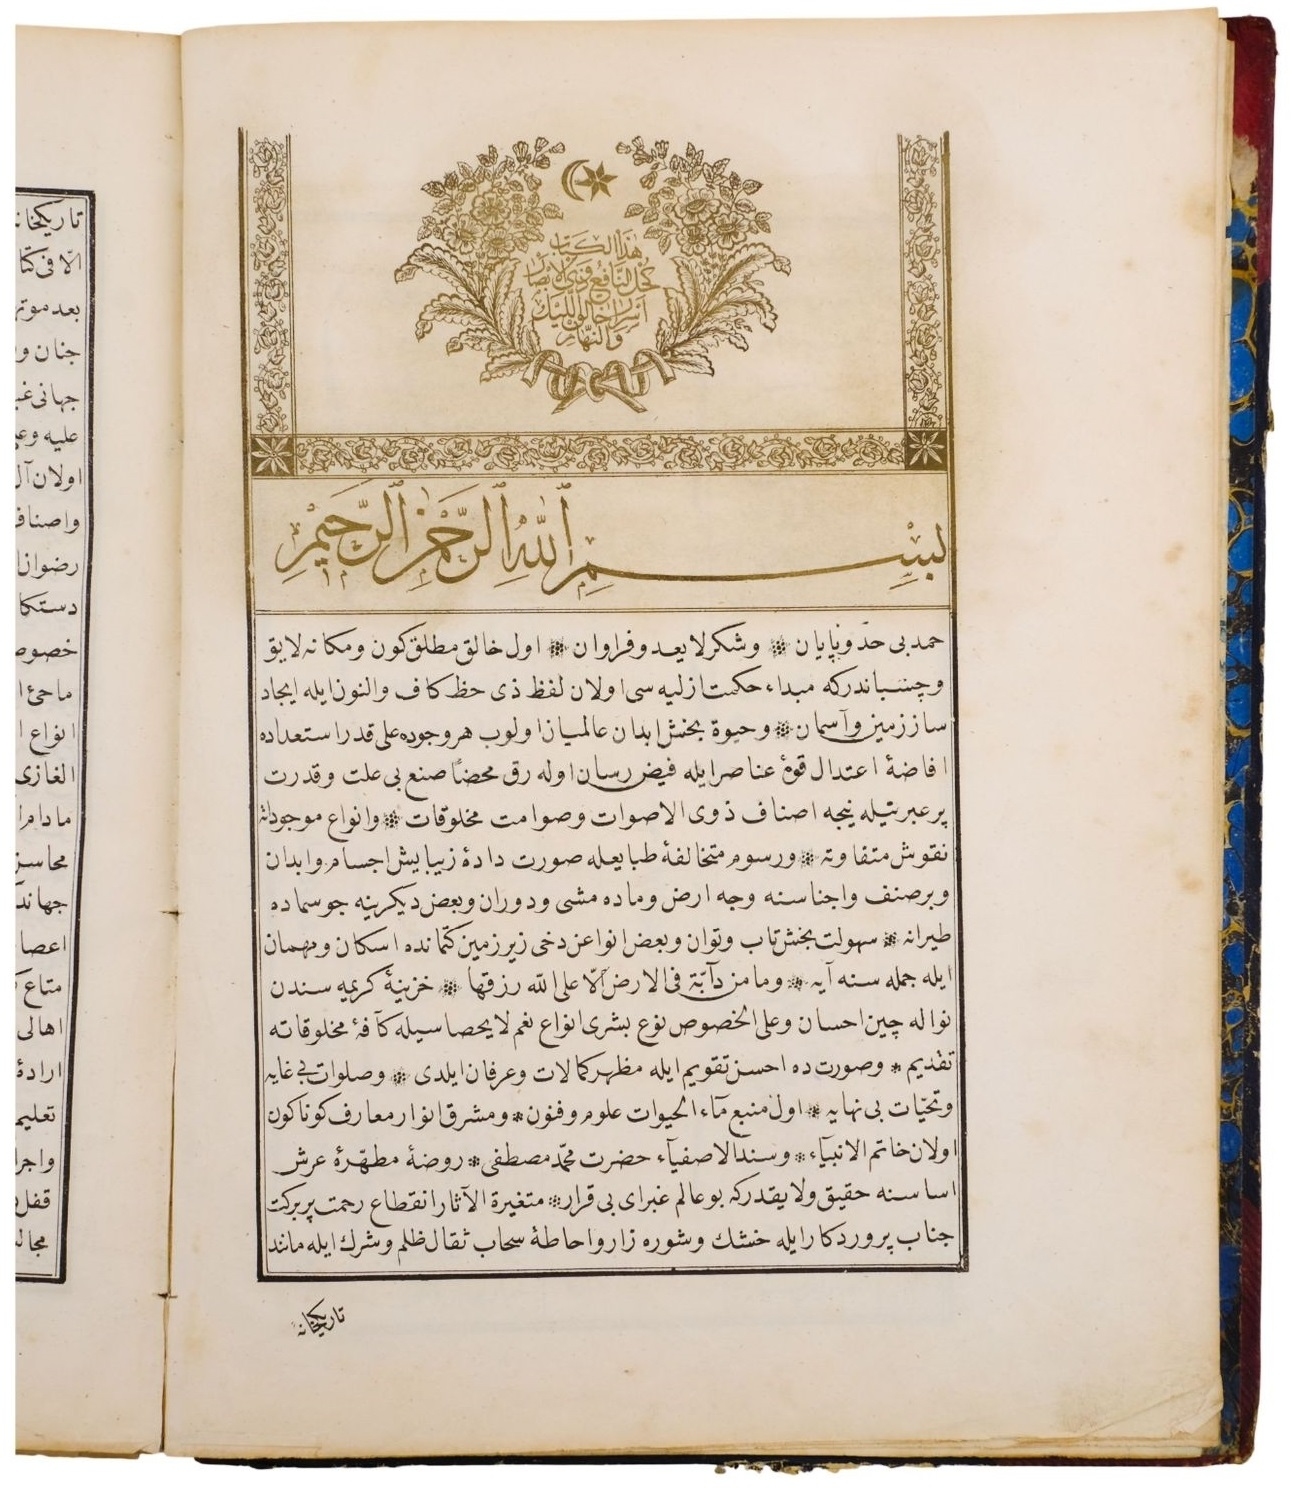 هذا الكتاب
كحل النافع فى ذوى الابصار
اسرار خالق الليل
والنهار
بسم الله الرحمن الرحيم
حمد بى حد و بپايان * وشكر لا يعد و فراوان * اول خالق مطلق كون ومكانه لايق
وچسباندركه مبداء حكمت ازليه سى اولان لفظ ذى حظ كاف والنون ايله ايجاد
ساز زمين وآسمان * وحيوة بخش ابدان عالميان اولوب هر وجوده على قدر استعداده
افاضهٔ اعتدال قوهٔ عناصر ايله فيض رسان اوله رق محضاً صنع بى علت وقدرت
پر عبرتيله نيجه اصناف ذوى الاصوات وصوامت مخلوقات * وانواع موجوداته
نقوش متفاوته * ورسوم متخالفهٔ طبايعله صورت دادهٔ زيبايش اجسام وابدان
وبر صنف واجناسنه وجه ارض وماده مشى ودوران وبعض ديكرينه جو سماده
طيرانه * سهولت بخش تاب وتوان وبعض انواعن دخى زير زمين كتماننده اسكان ومهمان
ايله جمله سنه آيه * وما من دآبّة فى الارض الّا على الله رزقها * خزينهٔ كريمه سندن
نواله چين احسان وعلى الخصوص نوع بشرى انواع نعم لا يحصاسيله كآفهٔ مخلوقاته
تقديم * وصورت ده احسن تقويم ايله مظهر كمالات وعرفان ايلدى * وصلوات بى غايه
وتحيّات بى نهايه * اول منبع مآء الحيوات علوم وفنون * ومشرق انوار معارف كوناكون
اولان خاتم الانبيآء * وسند الاصفيآء حضرت محمّد مصطفى * روضهٔ مطهّرهٔ عرش
اساسنه حقيق ولايقدركه بو عالم غبراى بى قرار * متغيرة الآثار انقطاع رحمت پر بركت
جناب پروردكار ايله خشك وشوره زار واحاطهٔ سحاب ثقال ظلم وشرك ايله مانند
تاريكخانه
تاريكخانه
الّا فى كتا
بعد موتها
جنان و
جهانى غب
عليه وعلى
اولان آل
واصناف
رضوان ا
دستكا
خصوص
ماحىء ا
انواع ا
الغازى
مادام ا
محاسن
جهاند
اعصا
متاع
اهالى
ارادهٔ
تعليم
واجرا
قفل
مجال